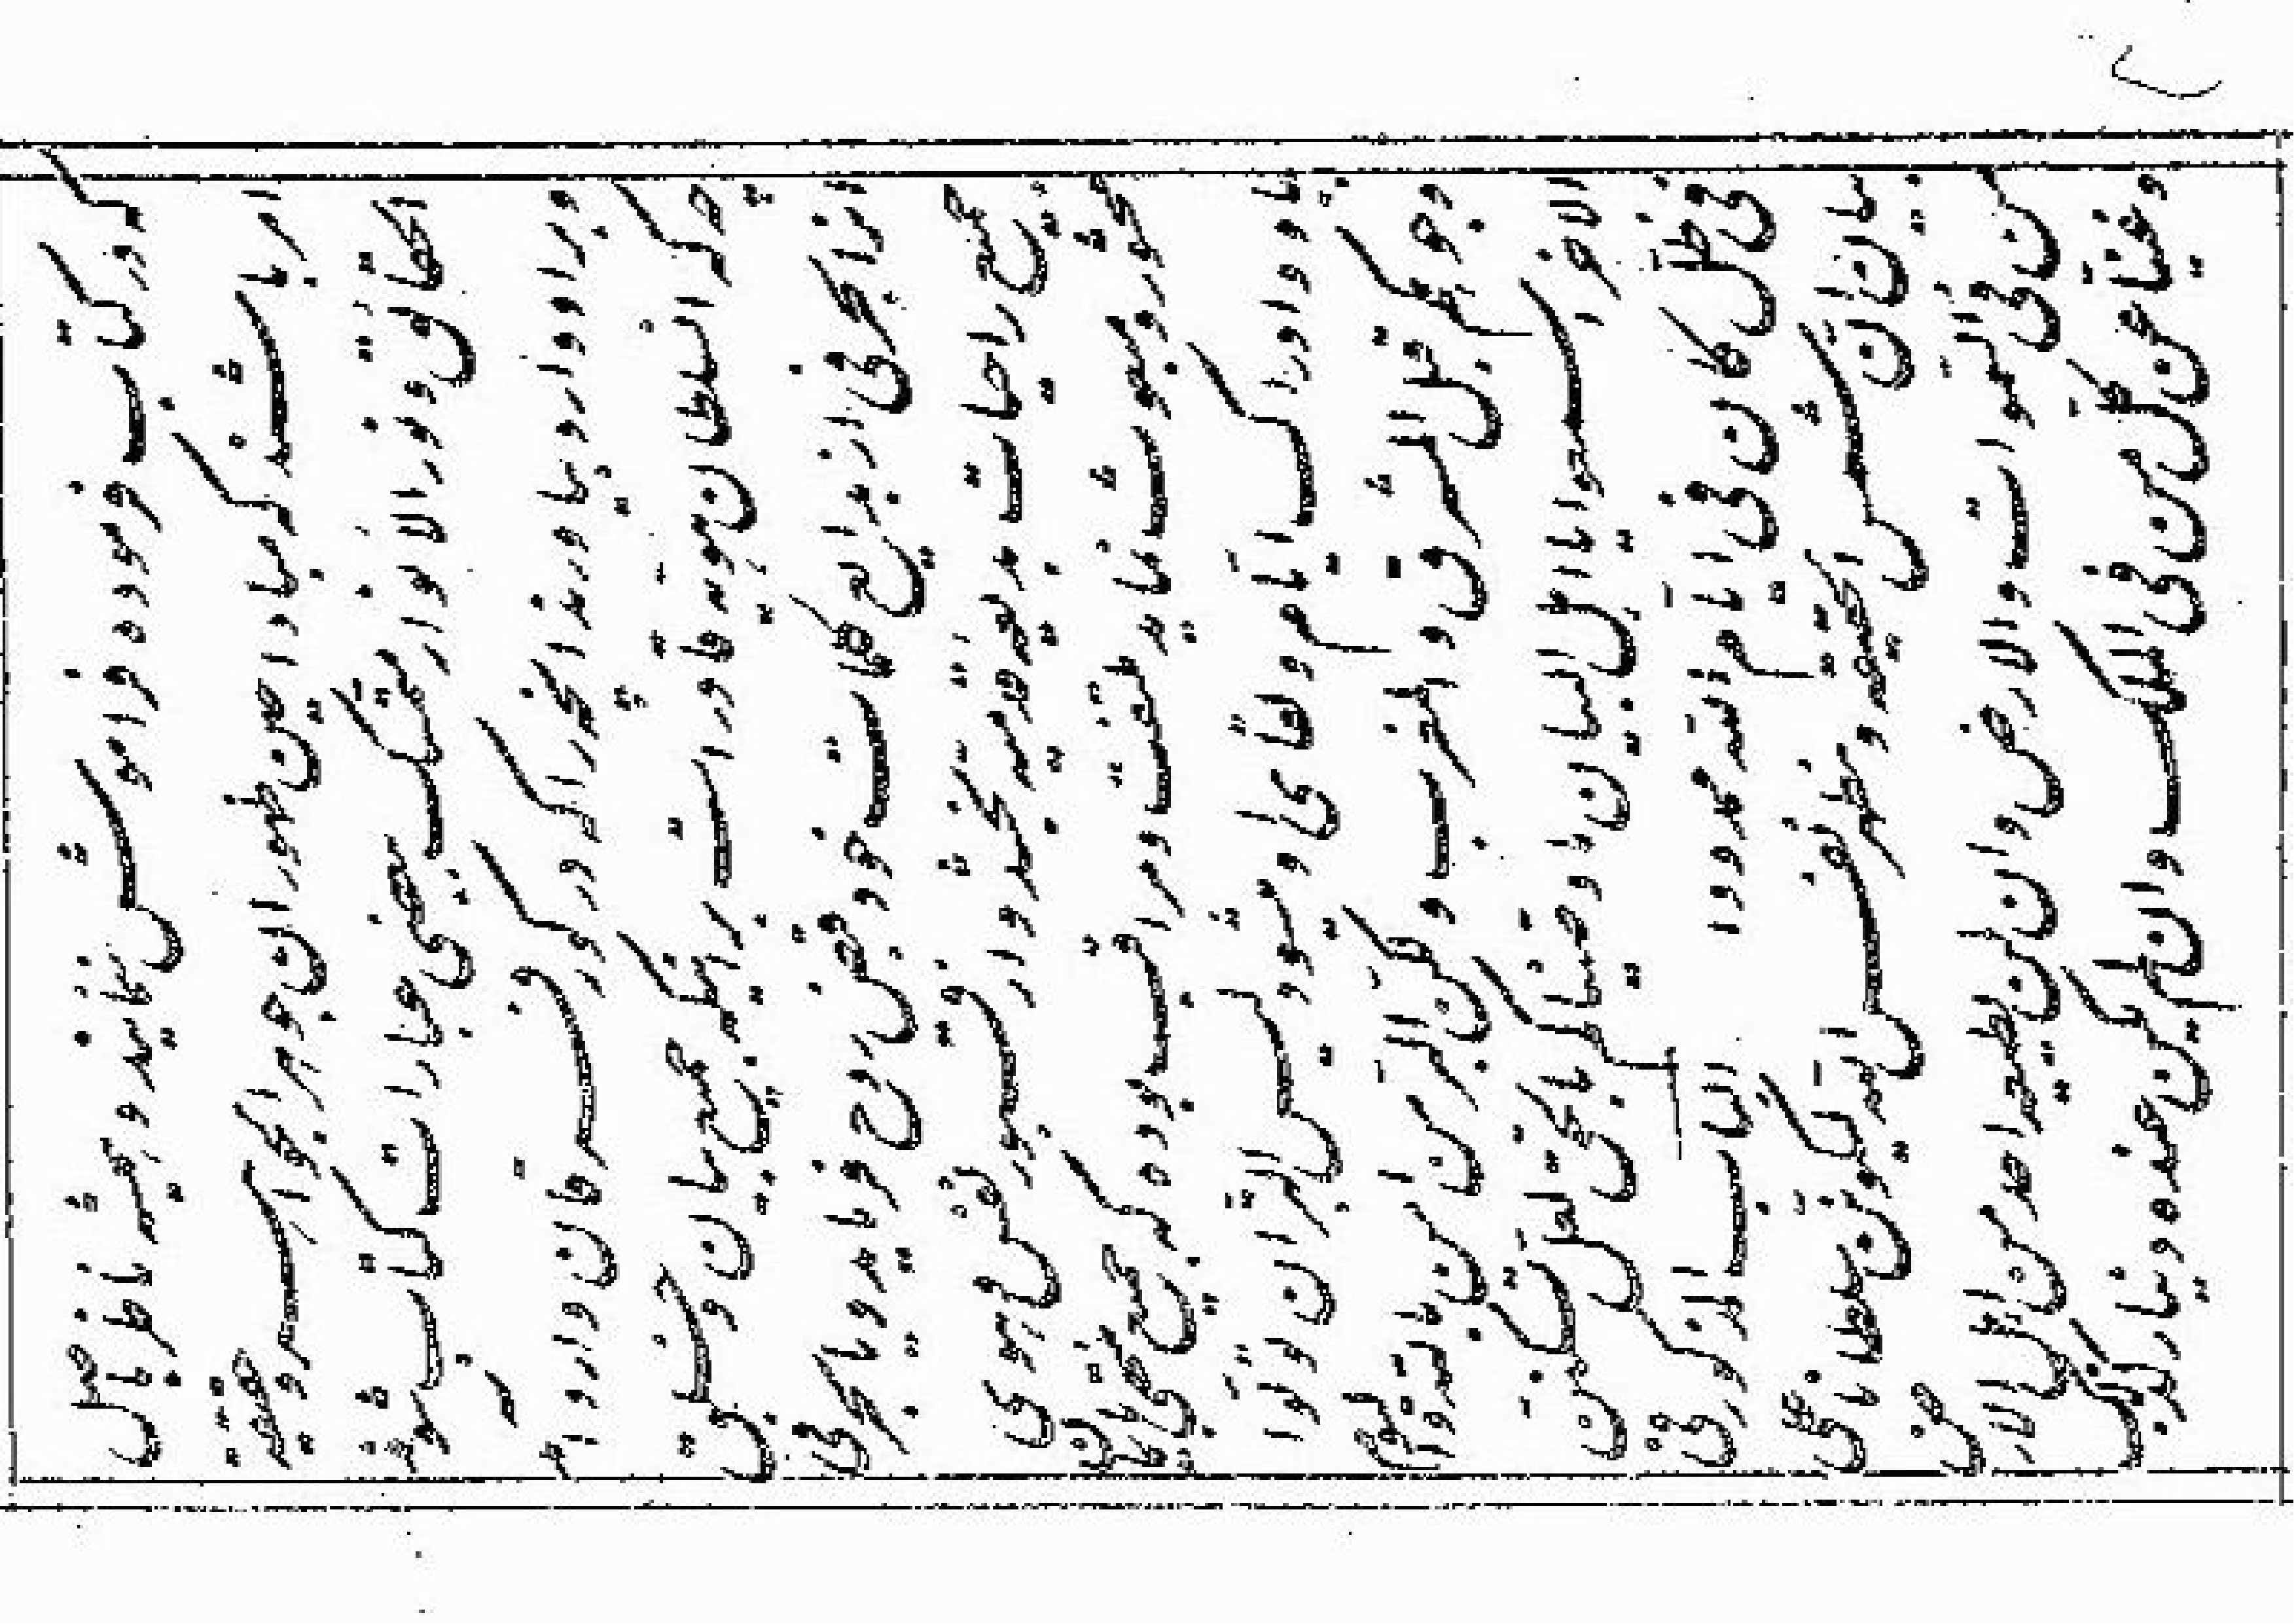 که ذکر یافت فرموده فراموش ننمائید و بچشم ناظر باصل
امر باشید که مبادا حین ظهور ان جوهر الجواهر و حقیقت
الحقایق و نور الانوار متمسک ببعضی عبارات کتاب شوید
و بر او وارد بیاورید انچه را که در کور فرقان وارد
چه که ان سلطان هویه قادر است بر اینکه جمیع بیان و خلق
انرا بحرفی از بدایع کلمات خود قبض روح فرماید و یا بحرفی
جمیع را حیات بدیعه قدمیه بخشد و از قبور نفس و هوی
محشور و مبعوث نماید ملتفت و مراقب بوده که جمیع منتهی بایمان
باو و ادراک ایامه و لقای او میشود لیس البر ان تولوا
وجوهکم قبل المشرق و المغرب ولکن البر من امن بالله و الیوم
الاخر اسمعوا یا اهل البیان ما وصیناکم بالحق لعل تسکنن
فی ظل کان فی ایام الله ممدودا الباب المذکور فی
بیان ان شمس الحقیقة و مظهر نفس الله لیکونن سلطانا علی
من فی السموات و الارض و ان لن یطیعه احد من اهل الارض
و غنیا عن کل من فی الملک و ان لم یکن عنده دینار کذلک